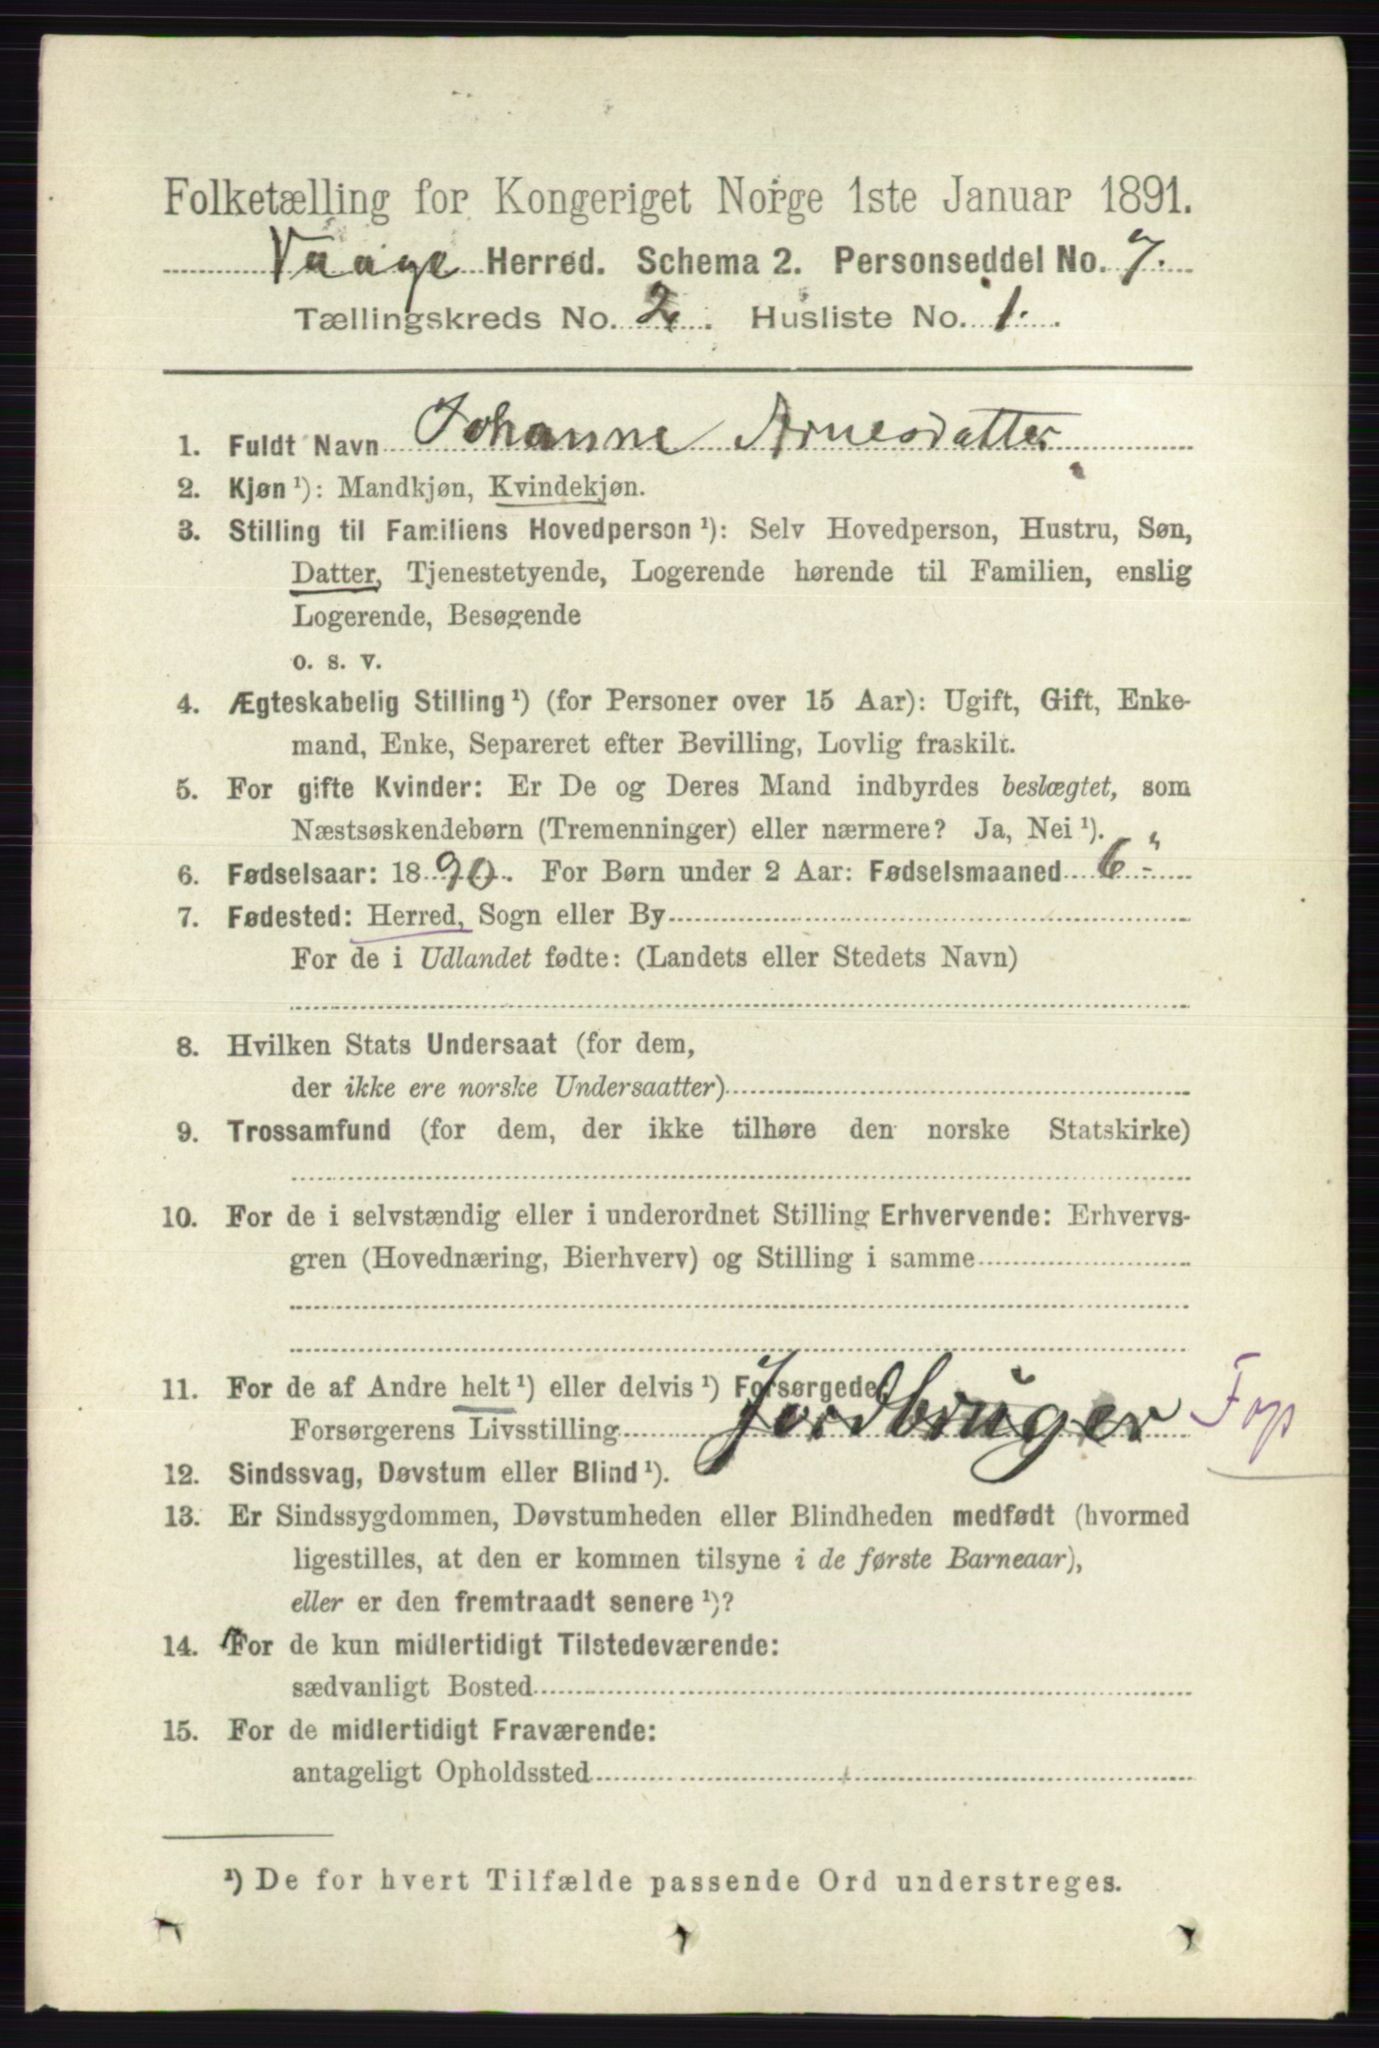 Folketælling for Kongeriget Norge 1ste Januar 1891.
Vaage Herred. Schema 2. Personseddel No. 7.
Tællingskreds No. 2. Husliste No. 1.
1. Fuldt Navn Johanne Arnesdatter
2. Kjøn ¹): Mandkjøn, Kvindekjøn.
3. Stilling til Familiens Hovedperson ¹): Selv Hovedperson, Hustru, Søn,
Datter, Tjenestetyende, Logerende hørende til Familien, enslig
Logerende, Besøgende
o. s. v.
4. Ægteskabelig Stilling ¹) (for Personer over 15 Aar): Ugift, Gift, Enke-
mand, Enke, Separeret efter Bevilling, Lovlig fraskilt.
5. For gifte Kvinder: Er De og Deres Mand indbyrdes beslægtet, som
Næstsøskendebørn (Tremenninger) eller nærmere? Ja, Nei ¹).
6. Fødselsaar: 1890. For Børn under 2 Aar: Fødselsmaaned 6 "
7. Fødested: Herred, Sogn eller By
For de i Udlandet fødte: (Landets eller Stedets Navn)
8. Hvilken Stats Undersaat (for dem,
der ikke ere norske Undersaatter)
9. Trossamfund (for dem, der ikke tilhøre den norske Statskirke)
10. For de i selvstændig eller i underordnet Stilling Erhvervende: Erhvervs-
gren (Hovednæring, Bierhverv) og Stilling i samme
11. For de af Andre helt ¹) eller delvis ¹) Forsørgede:
Forsørgerens Livsstilling Jordbruger Fop
12. Sindssvag, Døvstum eller Blind ¹).
13. Er Sindssygdommen, Døvstumheden eller Blindheden medfødt (hvormed
ligestilles, at den er kommen tilsyne i de første Barneaar),
eller er den fremtraadt senere ¹)?
14. For de kun midlertidigt Tilstedeværende:
sædvanligt Bosted
15. For de midlertidigt Fraværende:
antageligt Opholdssted
¹) De for hvert Tilfælde passende Ord understreges.